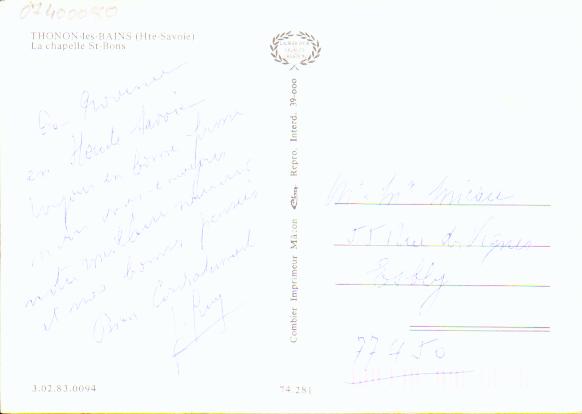 07400080
THONON-les-BAINS (Hte-Savoie)
La chapelle St-Bons
De Provence
en Haute Savoie
toujours en bonne forme
nous vous envoyons
notre meilleur souvenir
et nos bonnes pensées
Bien Cordialement
Combier Imprimeur Mâcon Repro. Interd. 39-000
Mr Mme
55 Rue des Vignes
Esbly
77450
3.02.83.0094
74 281